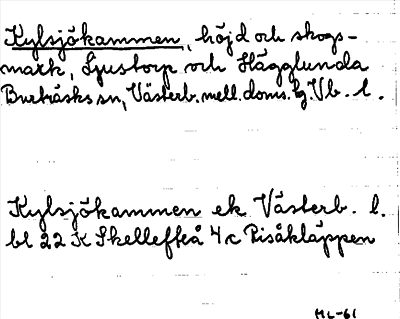 Kylsjökammen, höjd och skogs-
mark, Ljustorp och Hägglunda
Burträsks sn, Västerb. mell. doms. lg. Vb. l.
Kylsjökammen ek Västerb. l.
bl 22 K Skellefteå 4c Pisåkläppen
ML-61